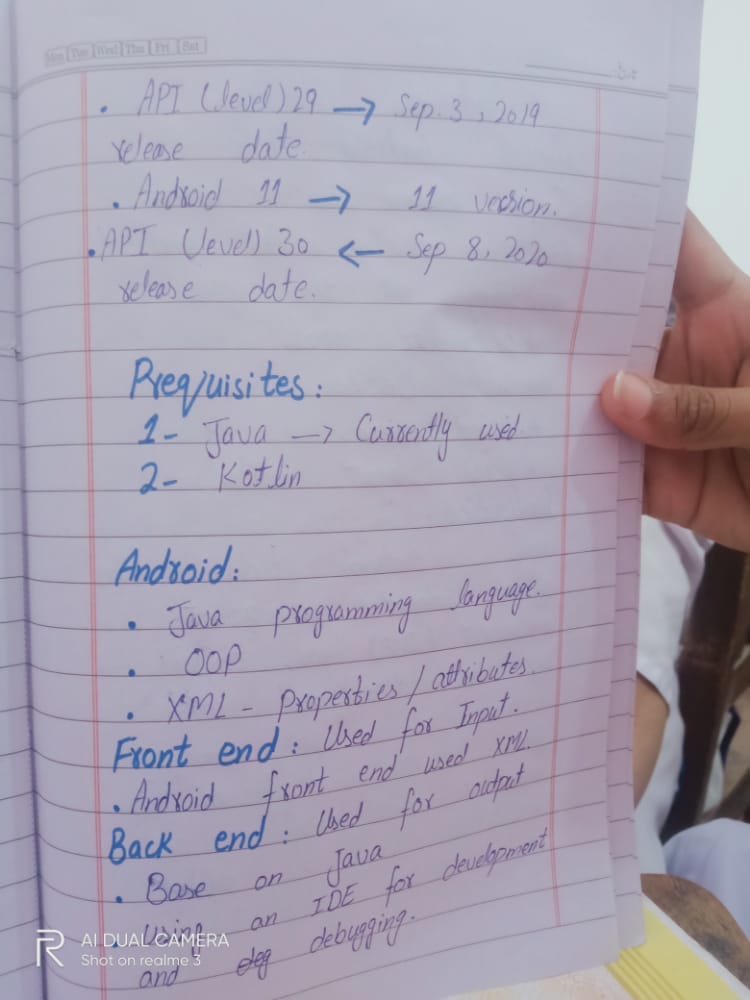 Mon Tue Wed Thu Fri Sat
• API (level) 29 → Sep. 3, 2019
release date.
• Android 11 → 11 version.
• API (level) 30 ← Sep 8, 2020
release date.
Prequisites:
1- Java → Currently used
2- Kotlin
Android:
• Java programming language.
• OOP
• XML - Properties / attributes.
Front end: Used for Input.
• Android front end used XML.
Back end: Used for output
• Base on Java
• Using an IDE for development
and debugging.
R AI DUAL CAMERA
Shot on realme 3